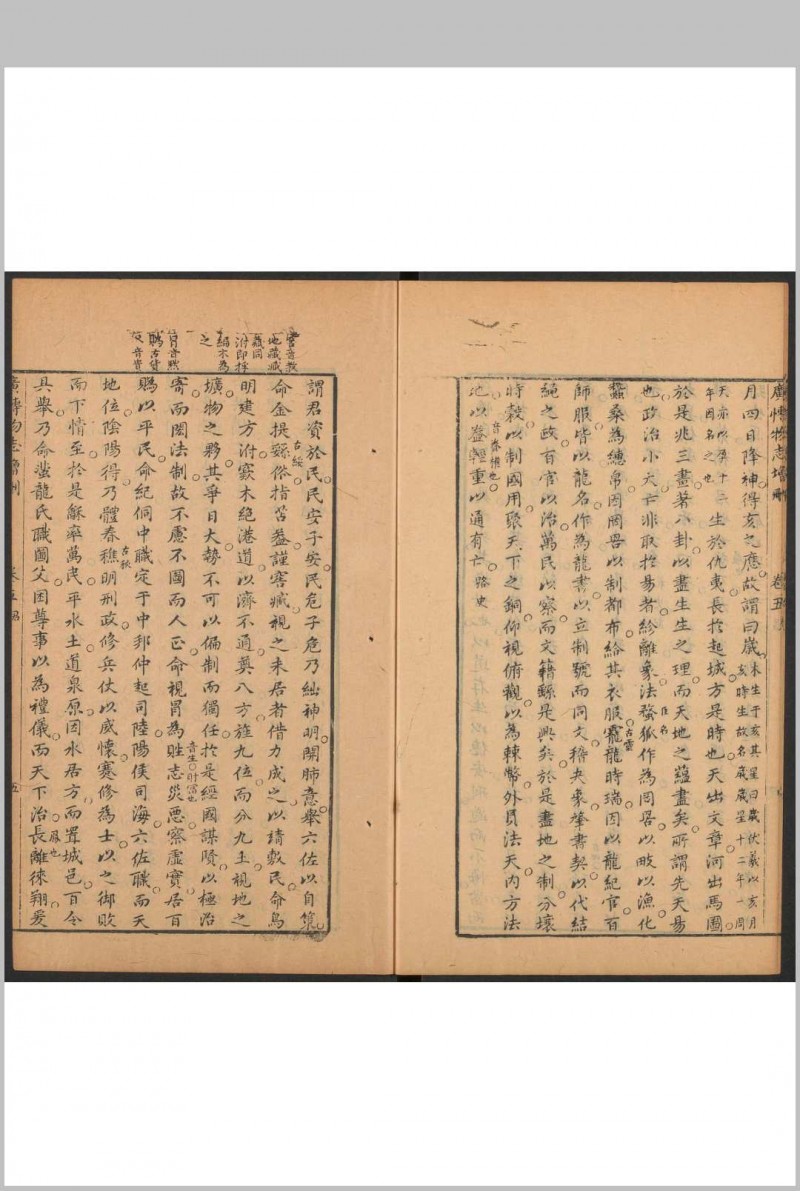 廣博物志增刪　卷五
月四日降神得亥之應故謂曰歲木生于亥其星曰歲伏羲以亥月亥時生故名歲歲星十二年一周
天亦以年十二年因名之也生於仇夷長於起城方是時也天出文章河出馬圖
於是兆三畫著八卦以盡生生之理而天地之蘊盡矣所謂先天易
也政治小大亡非取於易者紗離象法蝥狐作為罔罟以畋以漁化
蠶桑為繐帛因罔罟以制都布給其衣服龗龍時瑞因以龍紀官百
師服皆以龍名作為龍書以立制號而同文稽夬象肇書契以代結
繩之政百官以治萬民以察而文籍繇是興矣於是盡地之制分壤
時穀以制國用聚天下之銅仰視俯觀以為棘幣外員法天內方法
地以益輕重以通有亡路史
臣名
古靈
音春
謂君資於民民安子安民危子危乃紬神明開肺意舉六佐以自策
命金提䋣俗指苦益謹窖臧視之未居者借力成之以請敷民命鳥
明建方泭窾木絕港道以濟不通奠八方旌九位而分九土視地之
壙物之夥其爭日大勢不可以偏制而獨任於是經國謀賢以極治
寄而囦法制故不慮不圖而人正命視冒為賍志災惡察虛實居百
賜以平民命紀侗中職定于中邦仲起司陸陽侯司海六佐職而天
地位陰陽得乃體春穐明刑政修兵仗以威懷蹇修為士以之御敗
而下情至於是龢率萬民平水土道泉原因水居方而置城邑百令
具舉乃命潛龍氏職圖父因尊事以為禮儀而天下治長離徠翔爰
古綏
音生財富也
古秋
鳳也
窖音教
地藏臧
藏同
泭即桴
編木為
之
冒音默
賜古貨
音貲
廣博物志增刪　卷五　五